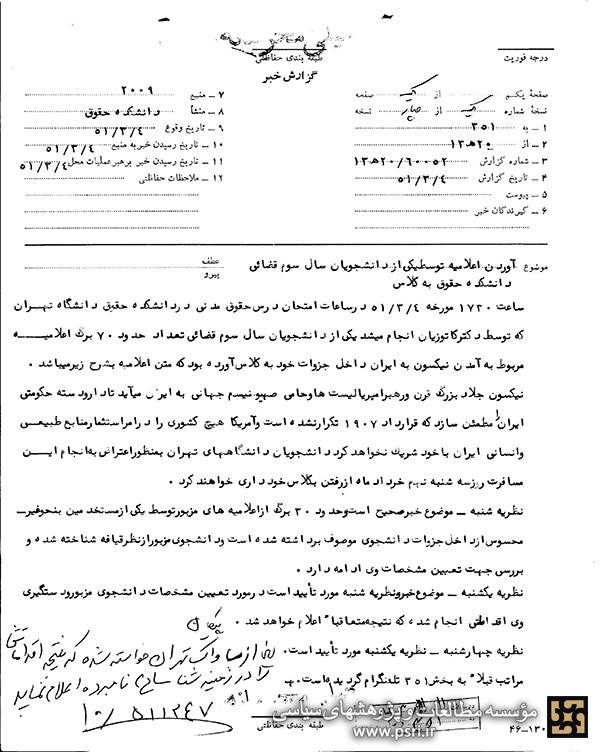 طبقه بندی حفاظتی
گزارش خبر
درجه فوریت
صفحه یکم از یک صفحه
نسخه شماره یک از چهار نسخه
۱ ـ به ۳۵۱
۲ ـ از ۲۰ه۱۳
۳ ـ شماره گزارش ۲۰/۶۰۰۵۲ه۱۳
۴ ـ تاریخ گزارش ۵۱/۳/۴
۵ ـ پیوست
۶ ـ گیرندگان خبر
۷ ـ منبع ۲۰۰۹
۸ ـ منشأ دانشکده حقوق
۹ ـ تاریخ وقوع ۵۱/۳/۴
۱۰ ـ تاریخ رسیدن خبر به منبع ۵۱/۳/۴
۱۱ ـ تاریخ رسیدن خبر برهبر عملیات محل ۵۱/۳/۴
۱۲ ـ ملاحظات حفاظتی
موضوع آوردن اعلامیه توسط یکی از دانشجویان سال سوم قضائی
دانشکده حقوق به کلاس
عطف
پیرو
ساعت ۱۷۳۰ مورخه ۵۱/۳/۴ در ساعات امتحان درس حقوق مدنی در دانشکده حقوق دانشگاه تهران
که توسط دکتر کاتوزیان انجام میشد یکی از دانشجویان سال سوم قضائی تعداد حدود ۷۰ برگ اعلامیه
مربوط به آمدن نیکسون به ایران داخل جزوات خود به کلاس آورده بود که متن اعلامیه بشرح زیر میباشد .
نیکسون جلاد بزرگ قرن و رهبر امپریالیست ها و حامی صهیونیسم جهانی به ایران میآید تا دارودسته حکومتی
ایران را مطمئن سازد که قرارداد ۱۹۰۷ تکرار نشده است و آمریکا هیچ کشوری را در امر استثمار منابع طبیعی
و انسانی ایران با خود شریک نخواهد کرد دانشجویان دانشگاههای تهران بمنظور اعتراض به انجام این
مسافرت روز سه شنبه نهم خرداد ماه از رفتن بکلاس خودداری خواهند کرد .
نظریه شنبه ـ موضوع خبر صحیح است و حدود ۳۰ برگ از اعلامیه های مزبور توسط یکی از مستخدمین بنحو غیر ـ
محسوس از داخل جزوات دانشجوی موصوف برداشته شده است و دانشجوی مزبور از نظر قیافه شناخته شده و
بررسی جهت تعیین مشخصات وی ادامه دارد .
نظریه یکشنبه ـ موضوع خبر و نظریه شنبه مورد تأیید است در مورد تعیین مشخصات دانشجوی مزبور و دستگیری
وی اقداماتی انجام شده که نتیجه متعاقباً اعلام خواهد شد .
نظریه چهارشنبه ـ نظریه یکشنبه مورد تأیید است.
مراتب قبلاً به بخش ۳۵۱ تلفنگرام گردیده است.
از ساواک تهران خواسته شده که نتیجه اقدامات
را در زمینه شناسائی نامبرده اعلام نماید
طبقه بندی حفاظتی
۱۳۰ ـ ۴۶
مؤسسه مطالعات و پژوهشهای سیاسی
www.psri.ir